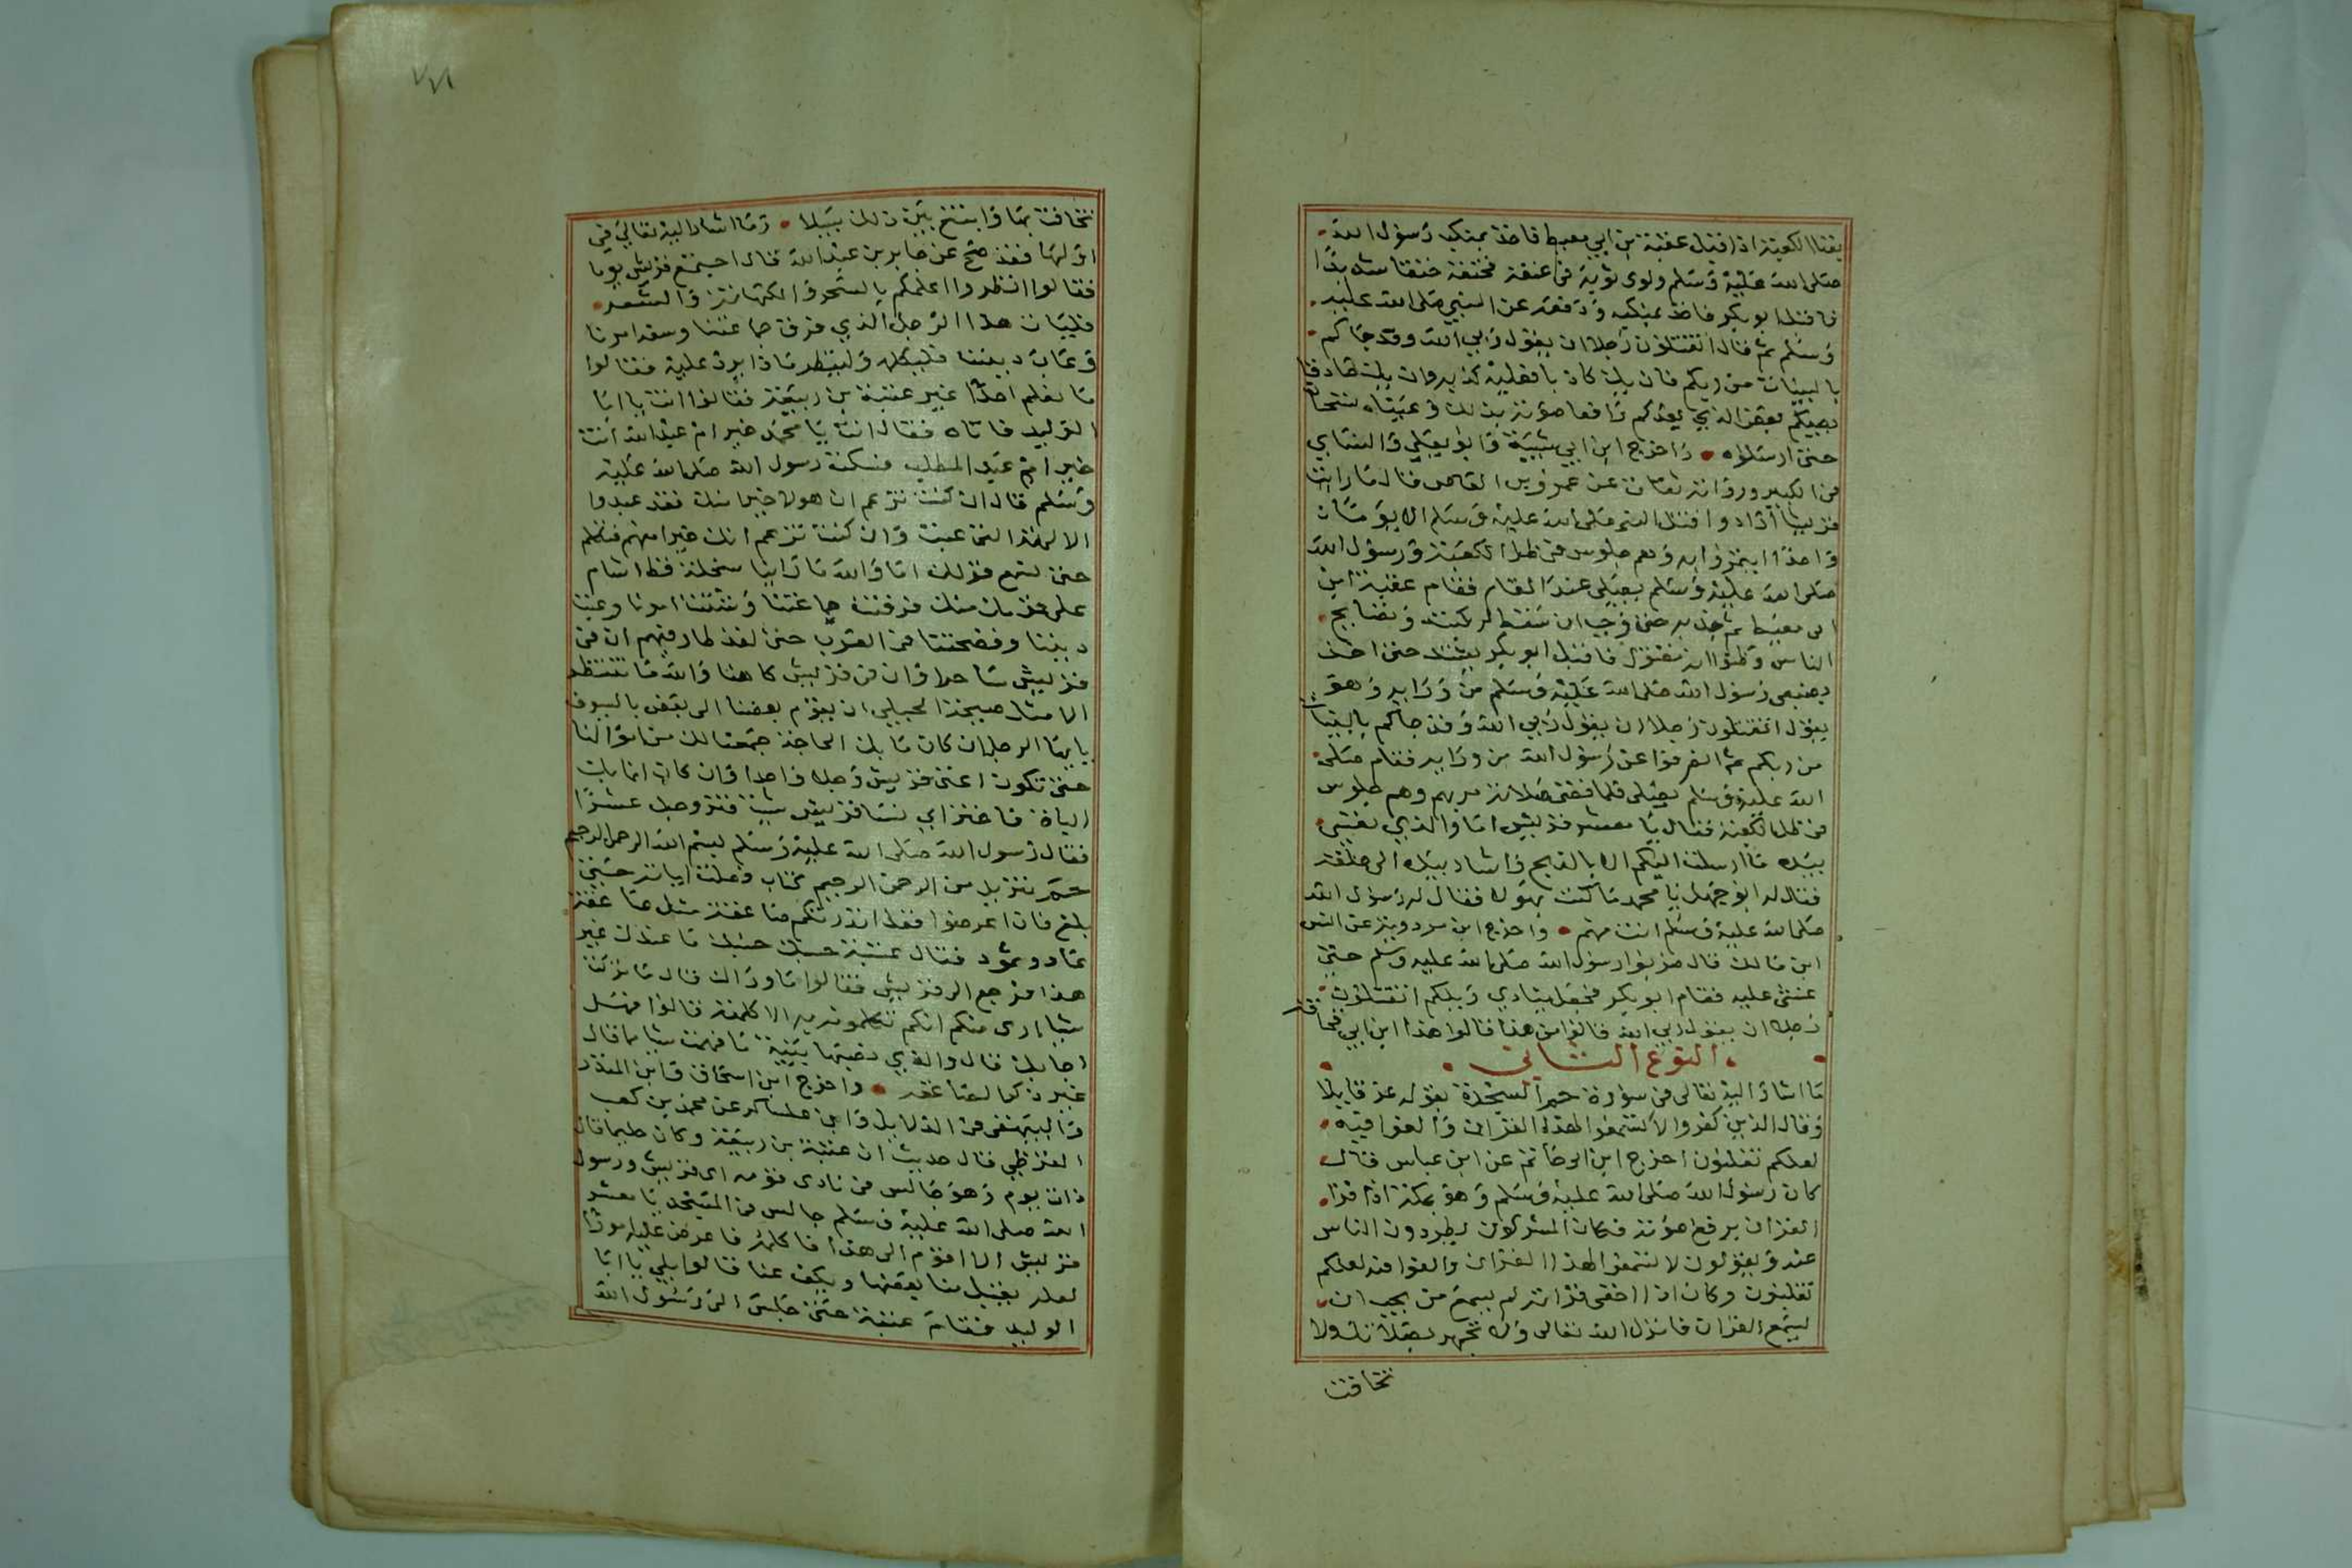 بفناء الكعبة اذ اقبل عقبة بن ابي معيط فاخذ بمنكب رسول الله
صلى الله عليه وسلم ولوى ثوبه في عنقه فخنقه خنقا شديدا
فاقبل ابو بكر فاخذ بمنكبه ودفعه عن النبي صلى الله عليه
وسلم ثم قال اتقتلون رجلا ان يقول ربي الله وقد جاكم
بالبينات من ربكم فان يك كاذبا فعليه كذبه وان يك صادقا
يصبكم بعض الذي يعدكم رافعا صوته بذلك وعيناه تسحان
حتى ارسلوه واخرج ابن ابي شيبة وابو يعلى والنساي
في الكبير ورواته ثقات عن عمرو بن العاص قال ما رايت
قريشا ارادوا قتل النبي صلى الله عليه وسلم الا يوما
واحدا ايتمروا به وهم جلوس في ظل الكعبة ورسول الله
صلى الله عليه وسلم يصلي عند المقام فقام عقبة ابن
ابي معيط ثم جذبه حتى وجب ان سقط لركبته وتصايح
الناس وظنوا انه مقتول فاقبل ابو بكر يشتد حتى اخذ
بضبعي رسول الله صلى الله عليه وسلم من ورايه وهو
يقول اتقتلون رجلا ان يقول ربي الله وقد جاكم بالبينات
من ربكم ثم انصرفوا عن رسول الله من ورايه فقام صلى
الله عليه وسلم يصلي فلما قضى صلاته مر بهم وهم جلوس
في ظل الكعبة فقال يا معشر قريش اما والذي نفسي
بيده ما ارسلت اليكم الا بالذبح واشار بيده الى حلقه
فقال له ابو جهل يا محمد ما كنت جهولا فقال له رسول الله
صلى الله عليه وسلم انت منهم واخرج ابن مردويه عن انس
ابن مالك قال ضربوا رسول الله صلى الله عليه وسلم حتى
غشي عليه فقام ابو بكر فجعل ينادي ويلكم اتقتلون
رجلا ان يقول ربي الله قالوا من هذا قالوا هذا ابن ابي قحافة
النوع الثاني
ما اشار اليه تعالى في سورة حم السجدة بقوله عز قايلا
وقال الذين كفروا لا تسمعوا لهذا القران والغوا فيه
لعلكم تغلبون اخرج ابن ابي حاتم عن ابن عباس قال
كان رسول الله صلى الله عليه وسلم وهو بمكة اذا قرا
القران يرفع صوته فكان المشركون يطردون الناس
عنه ويقولون لا تسمعوا لهذا القران والغوا فيه لعلكم
تغلبون وكان اذا اخفى قراته لم يسمع من يحب ان
يسمع القران فانزل الله تعالى ولا تجهر بصلاتك ولا
تخافت
تخافت بها وابتغ بين ذلك سبيلا وما اشار اليه تعالى في
اولها فقد صح عن جابر بن عبد الله قال اجتمع قريش يوما
فقالوا انظروا اعلمكم بالسحر والكهانة والشعر
فليات هذا الرجل الذي فرق جماعتنا وشتت امرنا
وعاب ديننا فليكلمه ولينظر ماذا يرد عليه فقالوا
ما نعلم احدا غير عتبة بن ربيعة فقالوا انت يا ابا
الوليد فاتاه فقال انت يا محمد خير ام عبد الله انت
خير ام عبد المطلب فسكت رسول الله صلى الله عليه
وسلم قال ان كنت تزعم ان هولا خير منك فقد عبدوا
الالهة التي عبت وان كنت تزعم انك خير منهم فتكلم
حتى نسمع قولك اما والله ما راينا سخلة قط اشام
على قومك منك فرقت جماعتنا وشتت امرنا وعبت
ديننا وفضحتنا في العرب حتى لقد طار فيهم ان في
قريش ساحرا وان في قريش كاهنا والله ما ننتظر
الا مثل صيحة الحبلى ان يقوم بعضنا الى بعض بالسيوف
يا ايها الرجل ان كان ما بك الحاجة جمعنا لك من اموالنا
حتى تكون اغنى قريش رجلا واحدا وان كان انما بك
الباة فاختر اي نسا قريش شيت فتزوجك عشرا
فقال رسول الله صلى الله عليه وسلم بسم الله الرحمن الرحيم
حم تنزيل من الرحمن الرحيم كتاب فصلت اياته حتى
بلغ فان اعرضوا فقل انذرتكم صاعقة مثل صاعقة
عاد وثمود فقال عتبة حسبك حسبك ما عندك غير
هذا فرجع الى قريش فقالوا ما وراك قال ما تركت
شيا ارى منكم انكم تكلمونه به الا كلمته قالوا فهل
اجابك قال والذي نصبها بنية ما فهمت شيا مما قال
غير ذكر الصاعقة واخرج ابن اسحاق وابن المنذر
والبيهقي في الدلايل وابن عساكر عن محمد بن كعب
القرظي قال حدثت ان عتبة بن ربيعة وكان حليما قال
ذات يوم وهو جالس في نادي قومه اي قريش ورسول
الله صلى الله عليه وسلم جالس في المسجد يا معشر
قريش الا اقوم الى هذا فاكلمه فاعرض عليه امورا
لعله يقبل منا بعضها ويكف عنا قالوا بلى يا ابا
الوليد فقام عتبة حتى جلس الى رسول الله